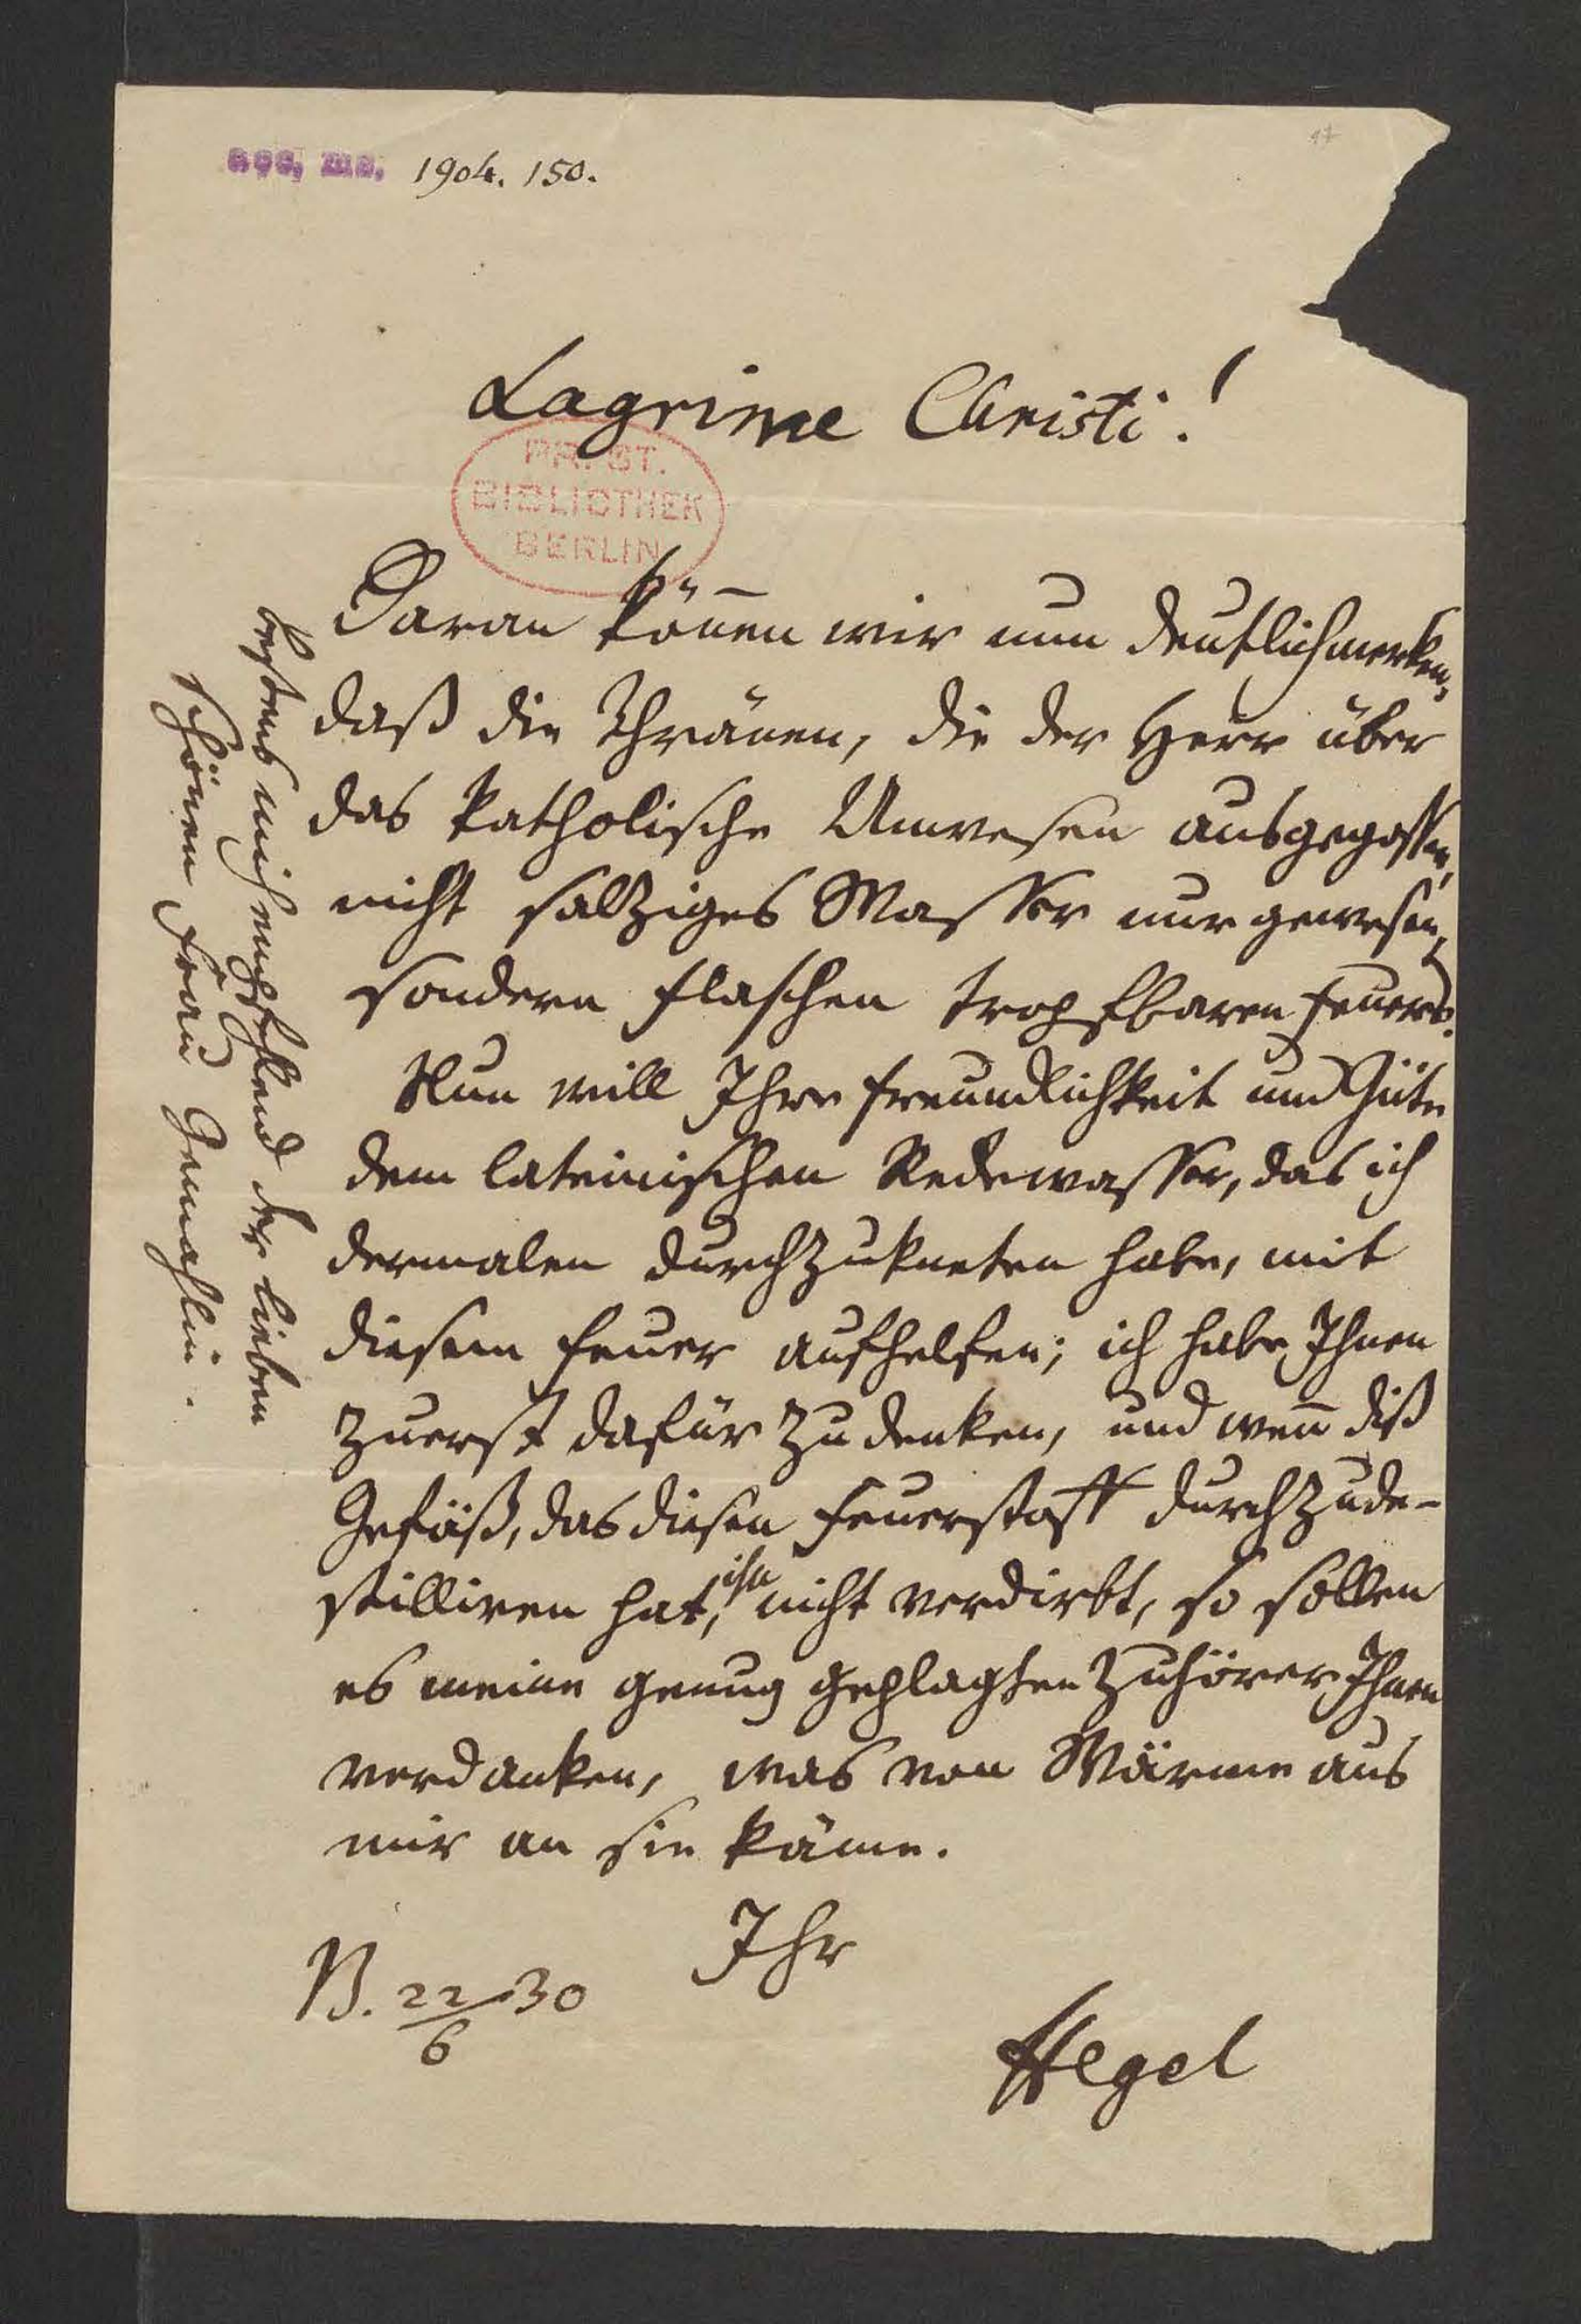 acc. ms. 1904. 150.
Lagrime Christi!
PR. ST.
BIBLIOTHEK
BERLIN
Daran kön̅en wir nun deutlich merken,
daß die Thränen, die der Herr über
das katholische Unwesen ausgegossen,
nicht salziges Wasser nur gewesen,
sondern Flaschen tropfbaren Feuers.
Nun will Ihre Freundlichkeit und Güte
dem lateinischen Redewasser, das ich
dermalen durchzukneten habe, mit
diesem Feuer aufhelfen; ich habe Ihnen
zuerst dafür zu denken, und wen̅ diß
Gefäß, das diesen Feuerstoff durchzude-
stilliren hat, ihn nicht verdirbt, so sollen
es meine genug geplagten Zuhörer Ihnen
verdanken, was von Wärme aus
mir an sie käme.
Ihr
B. 22/6 30
Hegel
bestens mich empfehlend der lieben
schönen Frau Gemahlin.